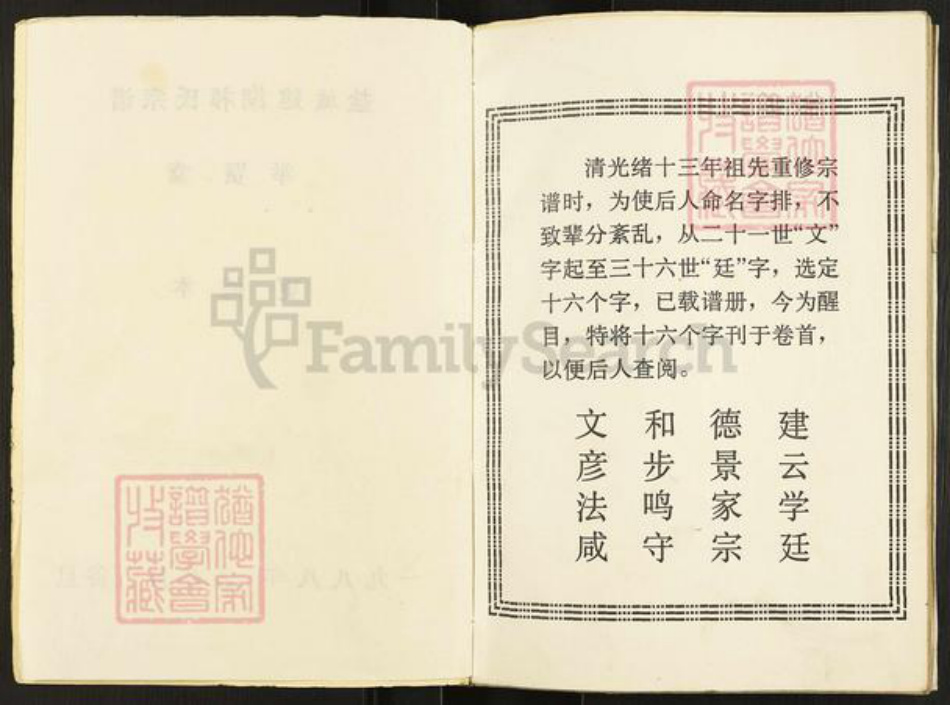 清光绪十三年祖先重修宗
谱时，为使后人命名字排，不
致辈分紊乱，从二十一世“文”
字起至三十六世“廷”字，选定
十六个字，已载谱册，今为醒
目，特将十六个字刊于卷首，
以便后人查阅。
文 和 德 建
彦 步 景 云
法 鸣 家 学
咸 守 宗 廷
FamilySearch
猶他家
譜學會
收藏
猶他家
譜學會
收藏